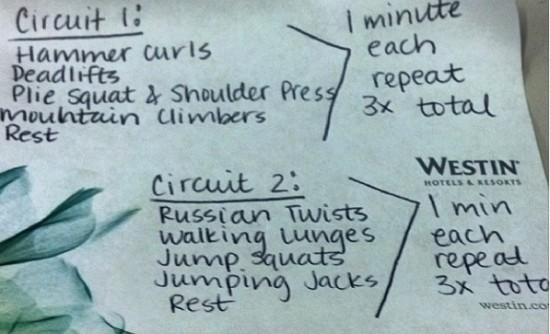 Circuit 1:
Hammer curls
Deadlifts
Plie Squat & Shoulder Press
mountain Climbers
Rest
1 minute
each
repeat
3x total
WESTIN
HOTELS & RESORTS
Circuit 2:
Russian Twists
walking lunges
Jump squats
Jumping Jacks
Rest
1 min
each
repeat
3x tota
westin.co